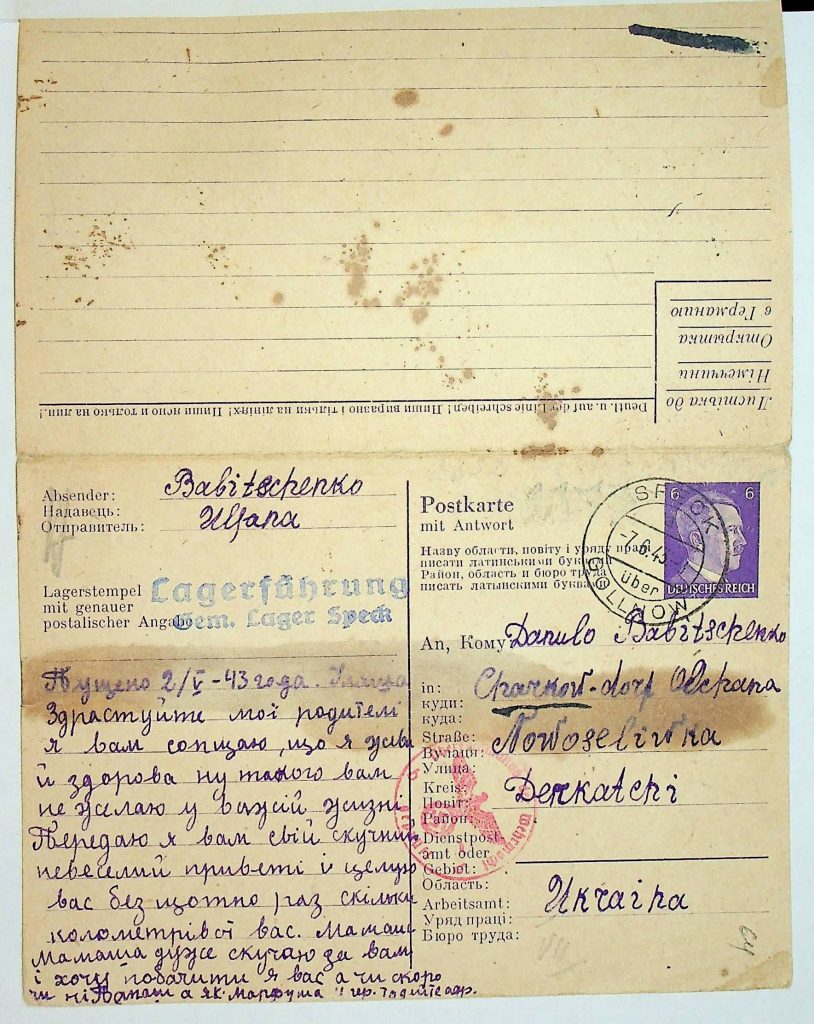 Deutl. u. auf der Linie schreiben! Пиши виразно і тільки на лініях! Пиши ясно и только на лин.!
Листівка до
Німеччини
Открытка
в Германию
Absender: Babitschenko
Надавець: Uljana
Отправитель:
Lagerstempel
mit genauer
postalischer Angabe
Lagerführung
Gem. Lager Speck
Postkarte
mit Antwort
Назву области, повіту і уряду праці
писати латинськими буквами
Район, область и бюро труда
писать латынскими буквами
6 6
DEUTSCHES REICH
SPECK
-7.6.43
über
GOLLNOW
An, Кому Danulo Babitschenko
in: Charkow-dorf Odchana
куди:
куда:
Straße: Nowoseliwka
Вулиця:
Улица:
Kreis: Derkatchi
Повіт:
Район:
Dienstpost
amt oder
Gebiet:
Область:
Arbeitsamt: Ukraina
Уряд праці:
Бюро труда:
Пущено 2/V-43 года.
Здраствуйте мої родителі
я вам сопщаю, що я жива
й здорова ну такого вам
не желаю у важій жизні
Передаю я вам свій скучний
невеселий приветі й целую
вас без щотно раз скільки
колометрівот вас. Мамаша
Мамаша дуже скучаю за вами
і хочу побачити я вас а чи скоро
а як Марфуша